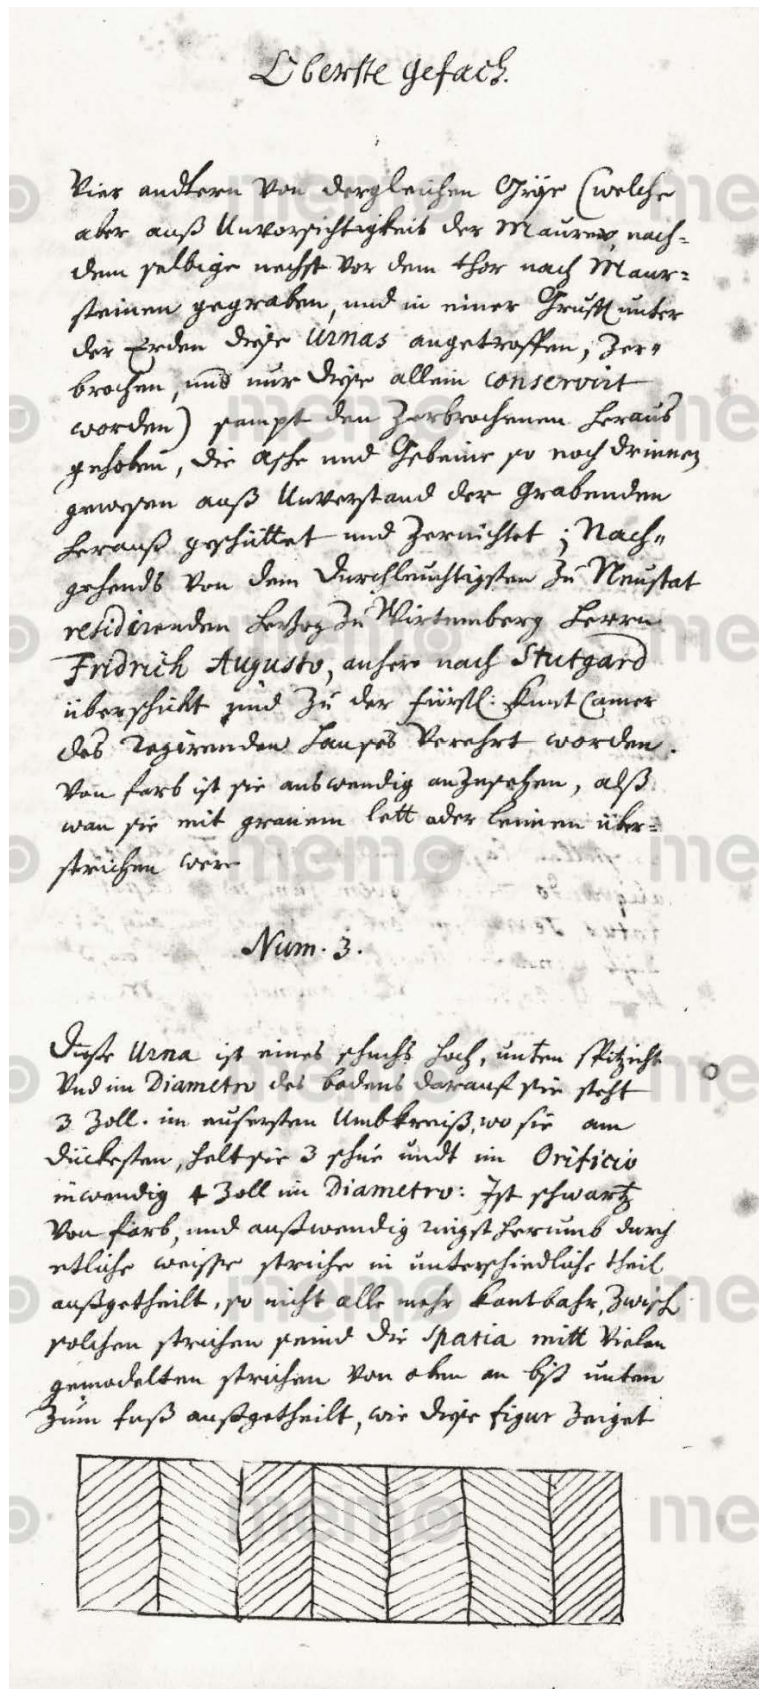 Oberste gefach.
Vier andtern von dergleichen (welche
aber auß Unvorsichtigkeit der Maurer, nach=
dem selbige nechst vor dem thor nach Maur=
steinen gegraben, und in einer Grufft unter
der Erden diese Urnas angetroffen, Zer=
brochen, und nur diese allein conservirt
worden) sampt den Zerbrochenen heraus
gehoben, die Asche und Gebeine so noch drinnen
gewesen auß Unverstand der Grabenden
herauß geschüttet und Zernichtet; Nach=
gehends von dem Durchleuchtigsten Zu Neustat
residirenden Herzog Zu Wirtemberg Herrn
Fridrich Augusto, anhero nach Stutgard
überschickt und Zu der fürstl: Kunst Camer
des Regirenden Hauses Verehrt worden.
Von farb ist sie auswendig anzusehen, alß
wan sie mit grauem lett oder leimen über=
strichen were
Num. 3.
Diese Urna ist eines schuchs hoch, unten spitzicht
Vnd im Diametro des bodens darauf sie steht
3 Zoll. im eusersten Umbkreiß, wo sie am
dückesten, helt sie 3 schue undt im Orificio
inwendig 4 Zoll im Diametro: Ist schwartz
Von farb, und außwendig herumb durch
etliche weisse striche in unterschiedliche theil
außgetheilt, so nicht alle mehr kantbahr, Zwisch
solchen strichen seind die spatia mitt Vielen
gemodelten strichen von oben an biß unten
Zum fuß außgetheilt, wie diese figur Zeiget
memo